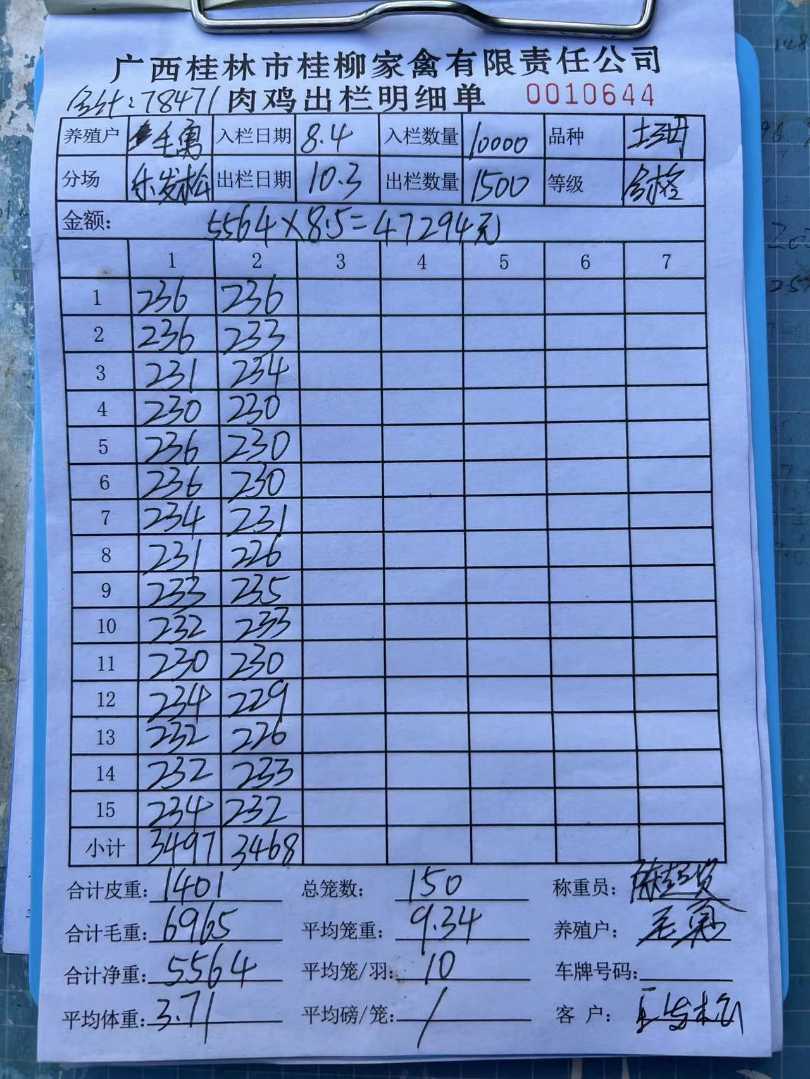 广西桂林市桂柳家禽有限责任公司
合计:78471 肉鸡出栏明细单 0010644
养殖户 毛勇 入栏日期 8.4 入栏数量 10000 品种
分场 出栏日期 10.3 出栏数量 1500 等级 合格
金额: 5564×8.5=47294元
1 2 3 4 5 6 7
1 236 236
2 236 233
3 231 234
4 230 230
5 236 230
6 236 230
7 234 231
8 231 226
9 233 235
10 232 233
11 230 230
12 234 229
13 232 226
14 232 233
15 234 232
小计 3497 3468
合计皮重: 1401 总笼数: 150 称重员:
合计毛重: 6965 平均笼重: 9.34 养殖户: 毛勇
合计净重: 5564 平均笼/羽: 10 车牌号码:
平均体重: 3.71 平均磅/笼: / 客户: